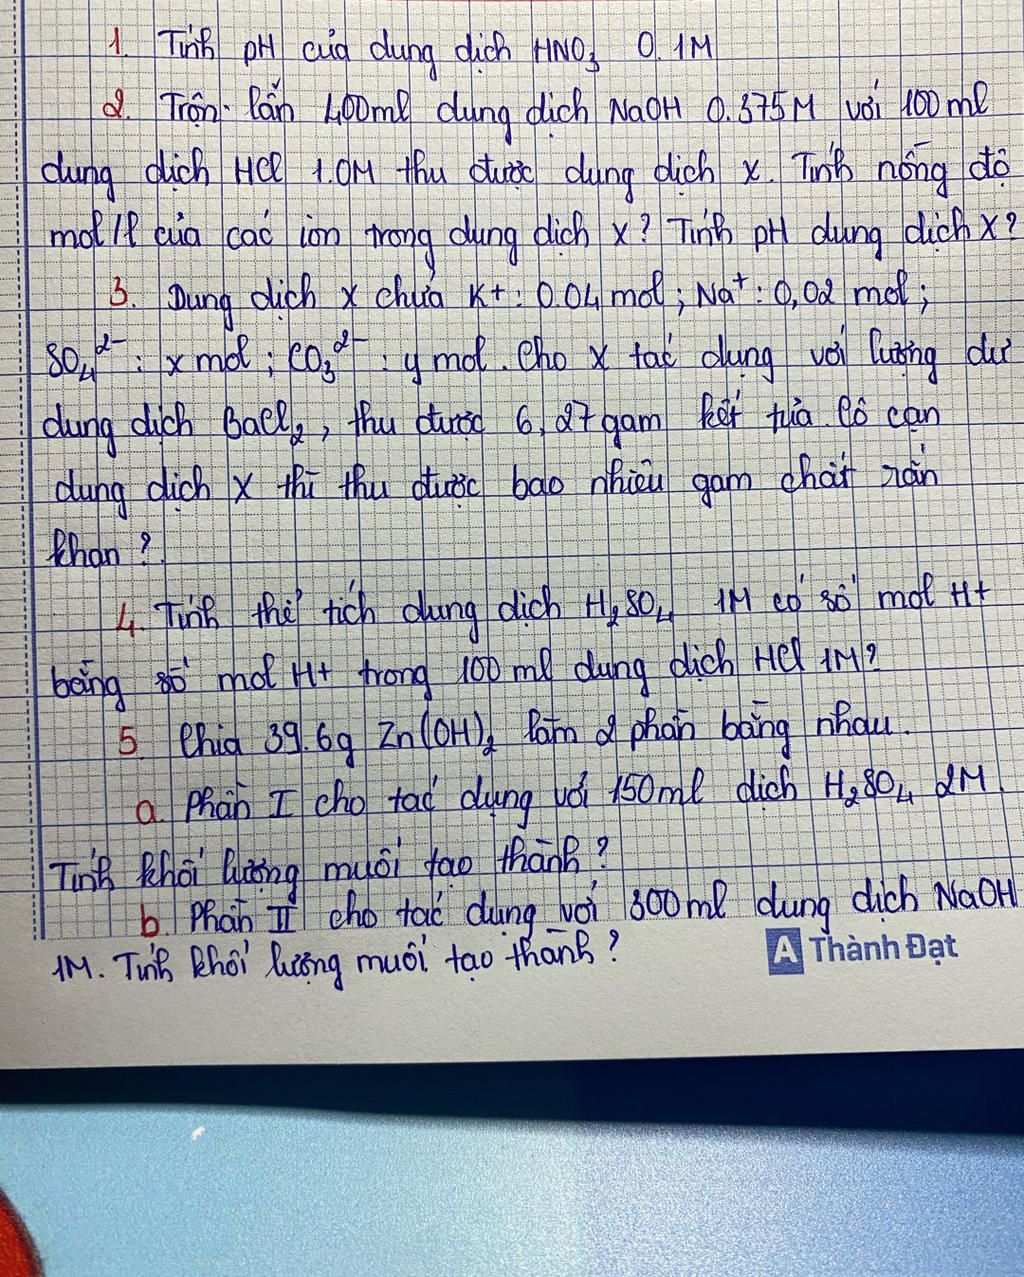 1. Tính pH của dung dịch HNO₃ 0.1M
2. Trộn lẫn 400ml dung dịch NaOH 0.375M với 100ml
dung dịch HCl 1.0M thu được dung dịch x. Tính nồng độ
mol/l của các ion trong dung dịch x? Tính pH dung dịch x?
3. Dung dịch x chứa K+: 0.04 mol; Na⁺: 0,02 mol;
SO₄²⁻: x mol; CO₃²⁻: y mol. Cho x tác dụng với lượng dư
dung dịch BaCl₂, thu được 6,27gam kết tủa. Cô cạn
dung dịch x thì thu được bao nhiêu gam chất rắn
khan?
4. Tính thể tích dung dịch H₂SO₄ 1M có số mol H+
bằng số mol H+ trong 100ml dung dịch HCl 1M?
5. Chia 39.6g Zn(OH)₂ làm 2 phần bằng nhau.
a. Phần I cho tác dụng với 150ml dịch H₂SO₄ 2M.
Tính khối lượng muối tạo thành?
b. Phần II cho tác dụng với 300ml dung dịch NaOH
1M. Tính khối lượng muối tạo thành?
A Thành Đạt